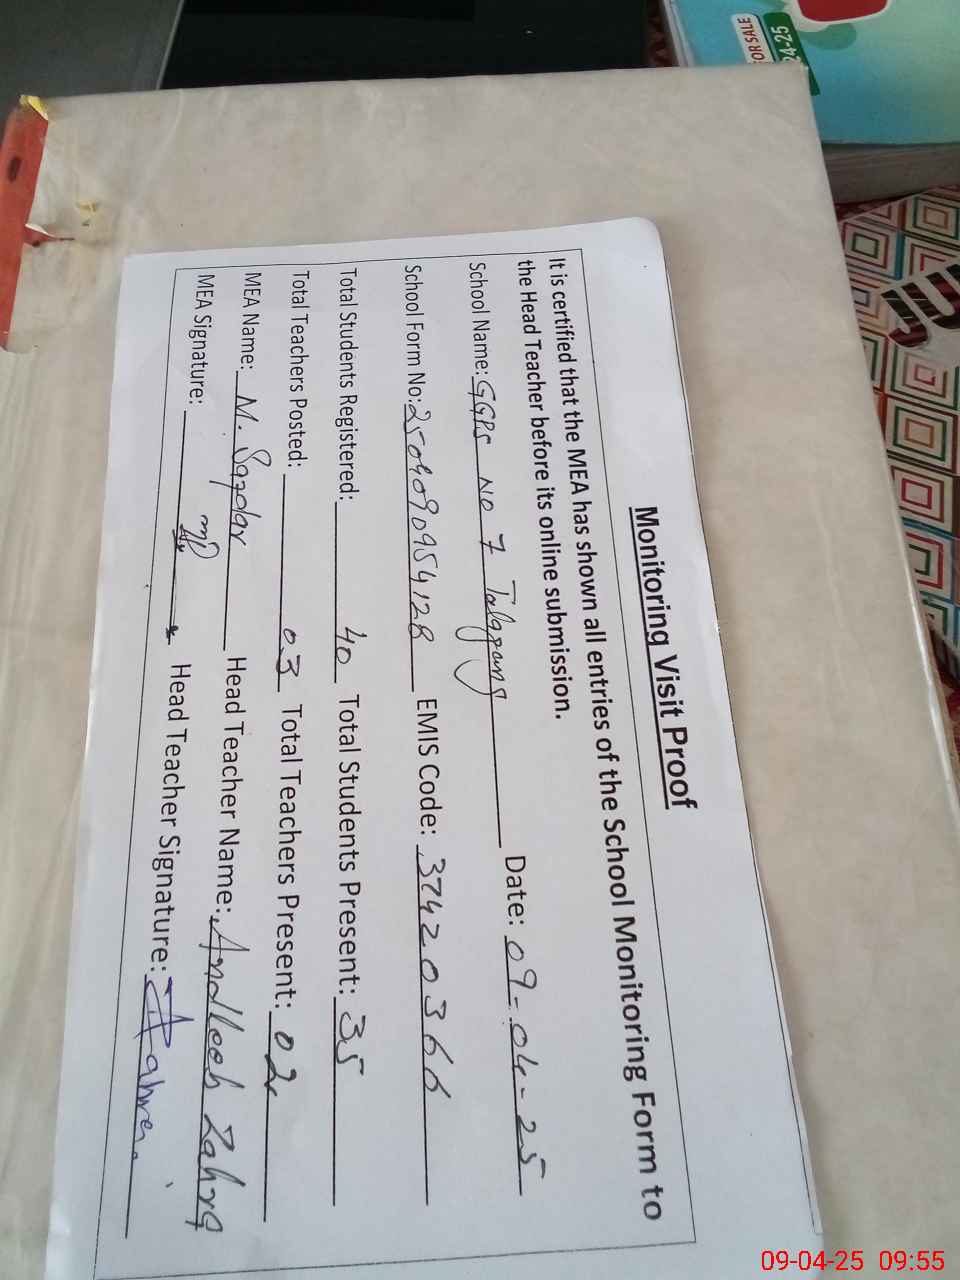 Monitoring Visit Proof
It is certified that the MEA has shown all entries of the School Monitoring Form to
the Head Teacher before its online submission.
School Name: GGPS NO 7 Talagang Date: 09-04-25
School Form No: 2504090954128 EMIS Code: 37420366
Total Students Registered: 40 Total Students Present: 35
Total Teachers Posted: 03 Total Teachers Present: 02
MEA Name: M. Safdar Head Teacher Name: Andleeb Zahra
MEA Signature: Head Teacher Signature: Zahra
FOR SALE
24-25
09-04-25 09:55